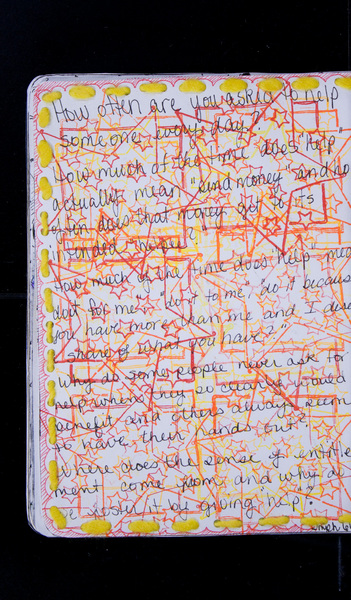 How often are you asked to help
someone every day?
How much of the time does "help"
actually mean "send money" and how
often does that money get to it's
intended
How much of the time does help mean
do it for me", "do it to me", do it because
you have more than me and I dese
share of what you have?"
Why do some people never ask for
help when they so clearly would
benefit and others always seem
to have their hands out?
Where does the sense of entitle
ment come from and why do
we foster it by giving "help"?